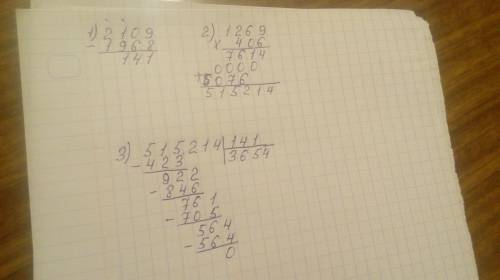 1) 2109
- 1968
141
2) 1269
× 406
7614
0000
+ 5076
515214
3) 515214 | 141
- 423 | 3654
922
- 846
761
- 705
564
- 564
0